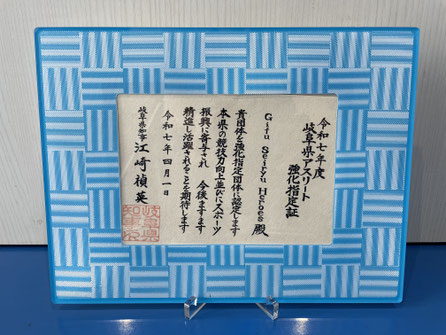 令和七年度
岐阜県アスリート
強化指定証
Gifu Seiryu Heroes 殿
貴団体を強化指定団体に認定します
本県の競技力向上並びにスポーツ
振興に寄与され 今後ますます
精進し活躍されることを期待します
令和七年四月一日
岐阜県知事 江崎禎英
岐阜県
知事印